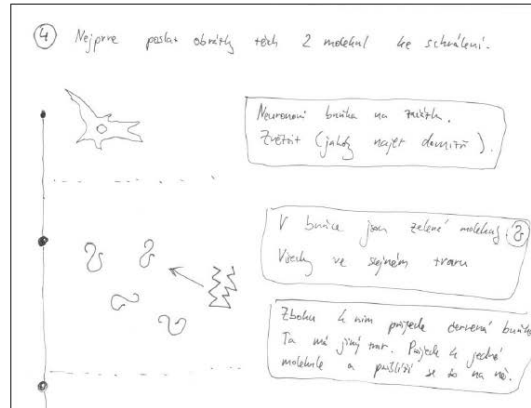 4 Nejprve poslat obrázky těch 2 molekul ke schválení.
Neuronová buňka na začátku.
Zvětšit (jakoby najet dovnitř).
V buňce jsou zelené molekuly
Všechny ve stejném tvaru
Zboku k nim přijede červená buňka
Ta má jiný tvar. Přijede k jedné
molekule a přiblíží se to na ně.